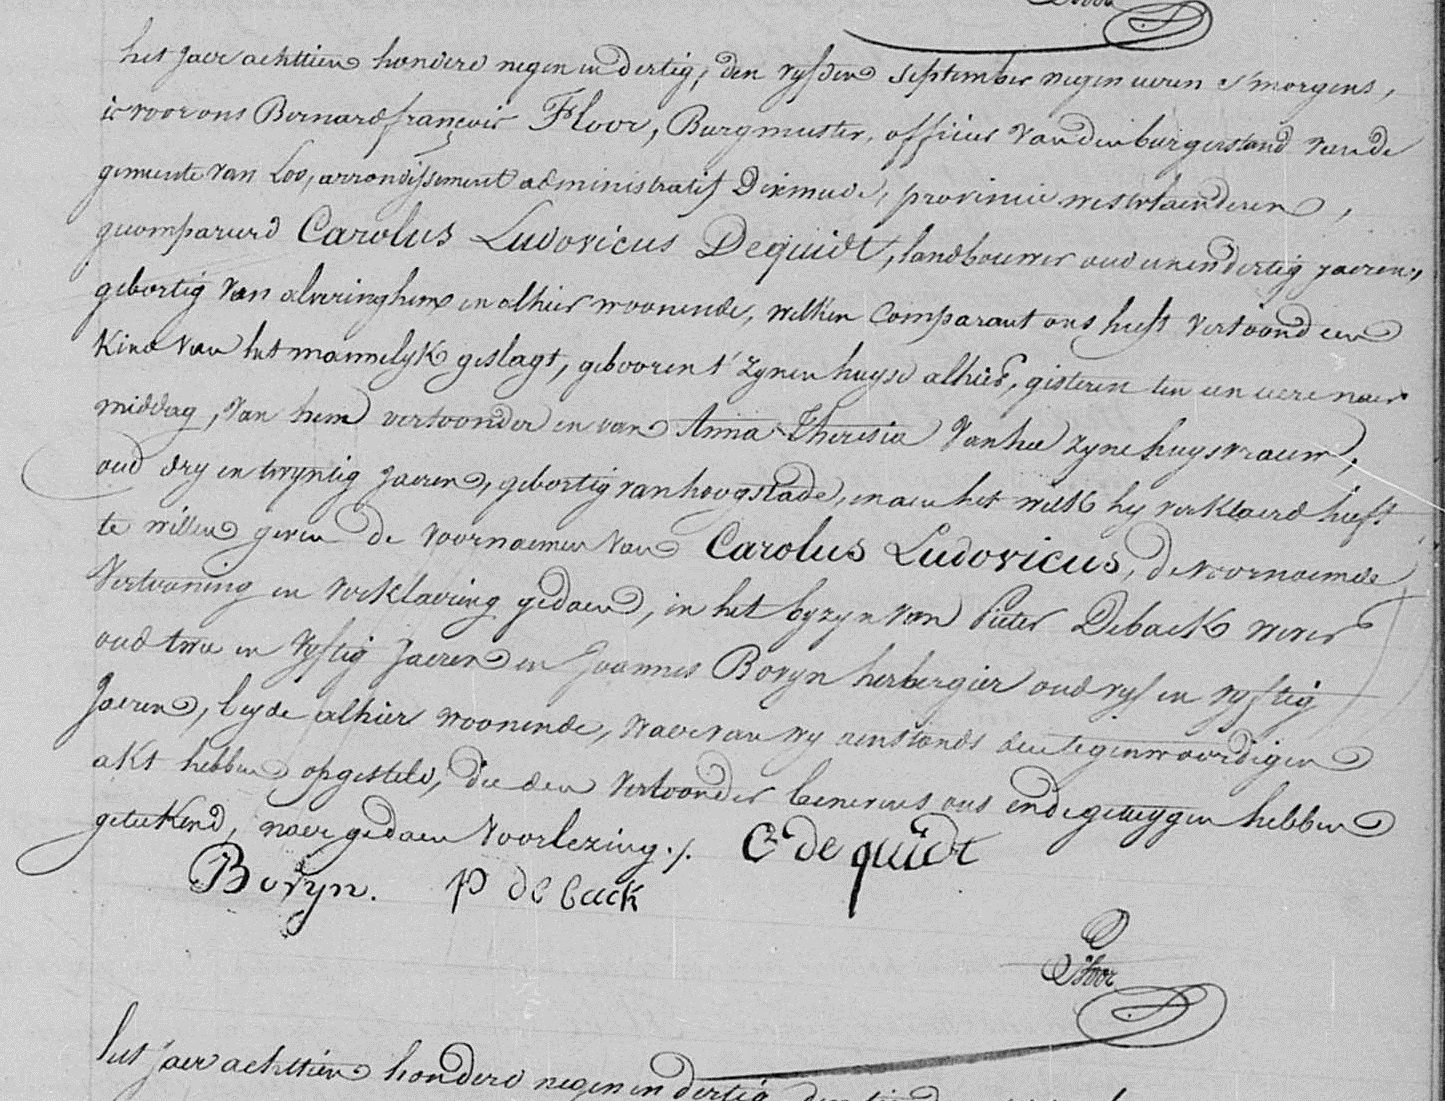 het jaer achttien honderd negen en dertig, den vyfden september negen uren s'morgens,
is voor ons Bernard françois Floor, Burgmeester, officier van den burgerstand van de
gemeente van Loo, arrondissement administratif Dixmude, provincie westvlaenderen,
gecompareerd Carolus Ludovicus Dequidt, landbouwer oud een en dertig jaeren,
gebortig van alveringhem en alhier woonende, welken Comparant ons heeft vertoond een
Kind van het mannelyk geslagt, gebooren t' zynen huyse alhier, gisteren ten een uere naer
middag, van hem vertoonder en van Anna Theresia Vanhee zyne huysvrauw,
oud dry en twyntig jaeren, gebortig van hoogstade, en aen het welk hy verklaerd heeft
te willen geven de voornaemen van Carolus Ludovicus, de voornoemde
Vertooning en verklaering gedaen, in het byzyn van Pieter Deback wever
oud twee en vyftig jaeren en Joannes Boryn herbergier oud vyf en vyftig
Jaeren, beyde alhier woonende, waervan wy aenstonds den tegenwoordigen
akt hebben opgesteld, die den vertoonder benevens ons ende getuygen hebben
geteekend, naer gedaen voorlezing ./. C de quidt
Boryn. P de back
Floor
het jaer achttien honderd negen en dertig